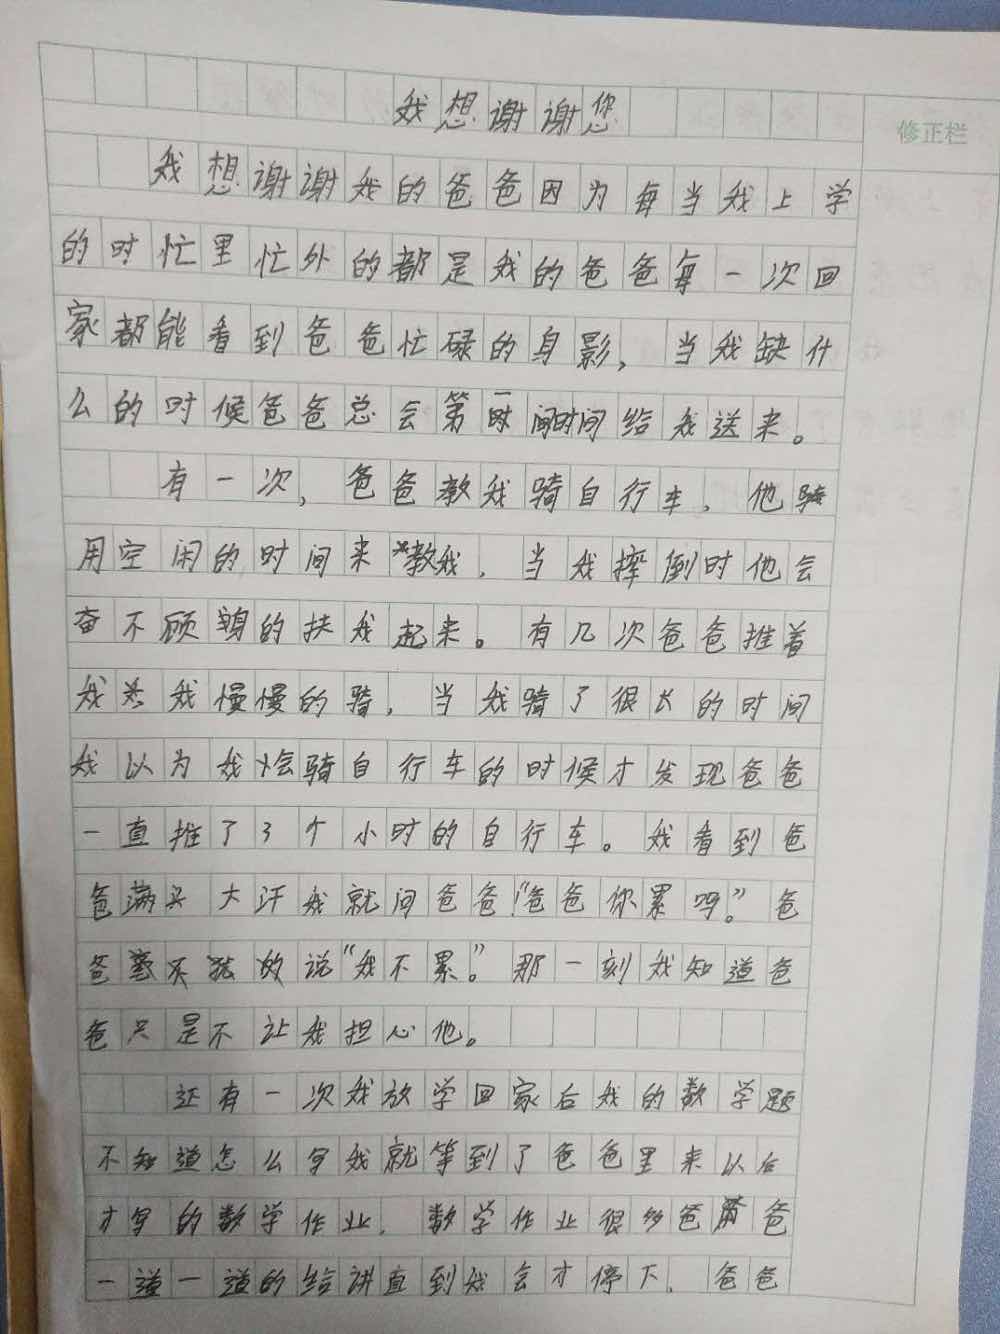 我想谢谢您
修正栏
我想谢谢我的爸爸因为每当我上学
的时忙里忙外的都是我的爸爸每一次回
家都能看到爸爸忙碌的身影,当我缺什
么的时候爸爸总会第一时间时间给我送来。
有一次,爸爸教我骑自行车,他
用空闲的时间来教我,当我摔倒时他会
奋不顾身的扶我起来。有几次爸爸推着
我我慢慢的骑,当我骑了很长的时间
我以为我会骑自行车的时候才发现爸爸
一直推了3个小时的自行车。我看到爸
爸满头大汗我就问爸爸!“爸爸你累吗。”爸
爸说“我不累。”那一刻我知道爸
爸只是不让我担心他。
还有一次我放学回家后我的数学题
不知道怎么写我就等到了爸爸里来以后
才写的数学作业,数学作业很多爸爸
一道一道的给讲直到我会才停下,爸爸